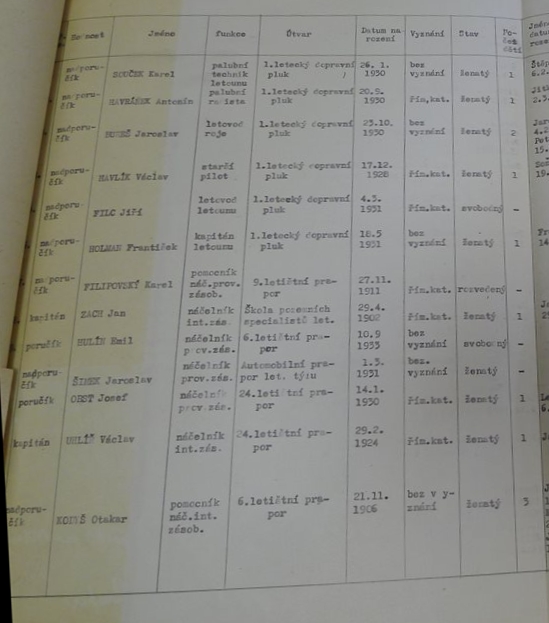 Jméno funkce Útvar Datum na- rození Vyznání Stav Po- čet dětí
palubní 1.letecký dopravní 26. 1. bez
SOUČEK Karel technik pluk 1930 vyznání ženatý 1
letounu
palubní 1.letecký dopravní 20.9.
HAVRÁNEK Antonín pluk 1930 řím.kat. ženatý 1
nadporu- letovod 1.letecký dopravní 23.10. bez
čík Jaroslav roje pluk 1930 vyznání ženatý 2
nadporu- starší 1.letecký dopravní 17.12.
čík HAVLÍK Václav pilot pluk 1928 řím.kat. ženatý 1
letovod 1.letecký dopravní 4.5.
čík FILC Jiří letounu pluk 1931 řím.kat. svobodný -
kapitán 1.letecký dopravní 18.5 bez
čík HOLMAN František letounu pluk 1931 vyznání ženatý 1
pomocník
FILIPOVSKÝ Karel náč.prov. 9.letištní pra- 27.11.
čík zásob. por 1911 řím.kat. rozvedený -
kapitán ZACH Jan náčelník Škola pozemních 29.4.
int.zás. specialistů let. 1902 řím.kat. ženatý 1
poručík HULÍN Emil náčelník 6.letištní pra- 10.9 bez
prov.zás. por 1933 vyznání svobodný -
nadporu- náčelník Automobilní pra- 1.5. bez.
čík ŠIMEK Jaroslav prov.zás. por let. týlu 1931 vyznání ženatý -
poručík OBST Josef náčelník 24.letištní pra- 14.1.
prov.zás. por 1930 řím.kat. ženatý 1
kapitán UHLÍŘ Václav náčelník 24.letištní pra- 29.2.
int.zás. por 1924 řím.kat. ženatý 1
nadporu- pomocník 6.letištní pra- 21.11. bez vy-
čík Otakar náč.int. por 1906 znání ženatý 3
zásob.